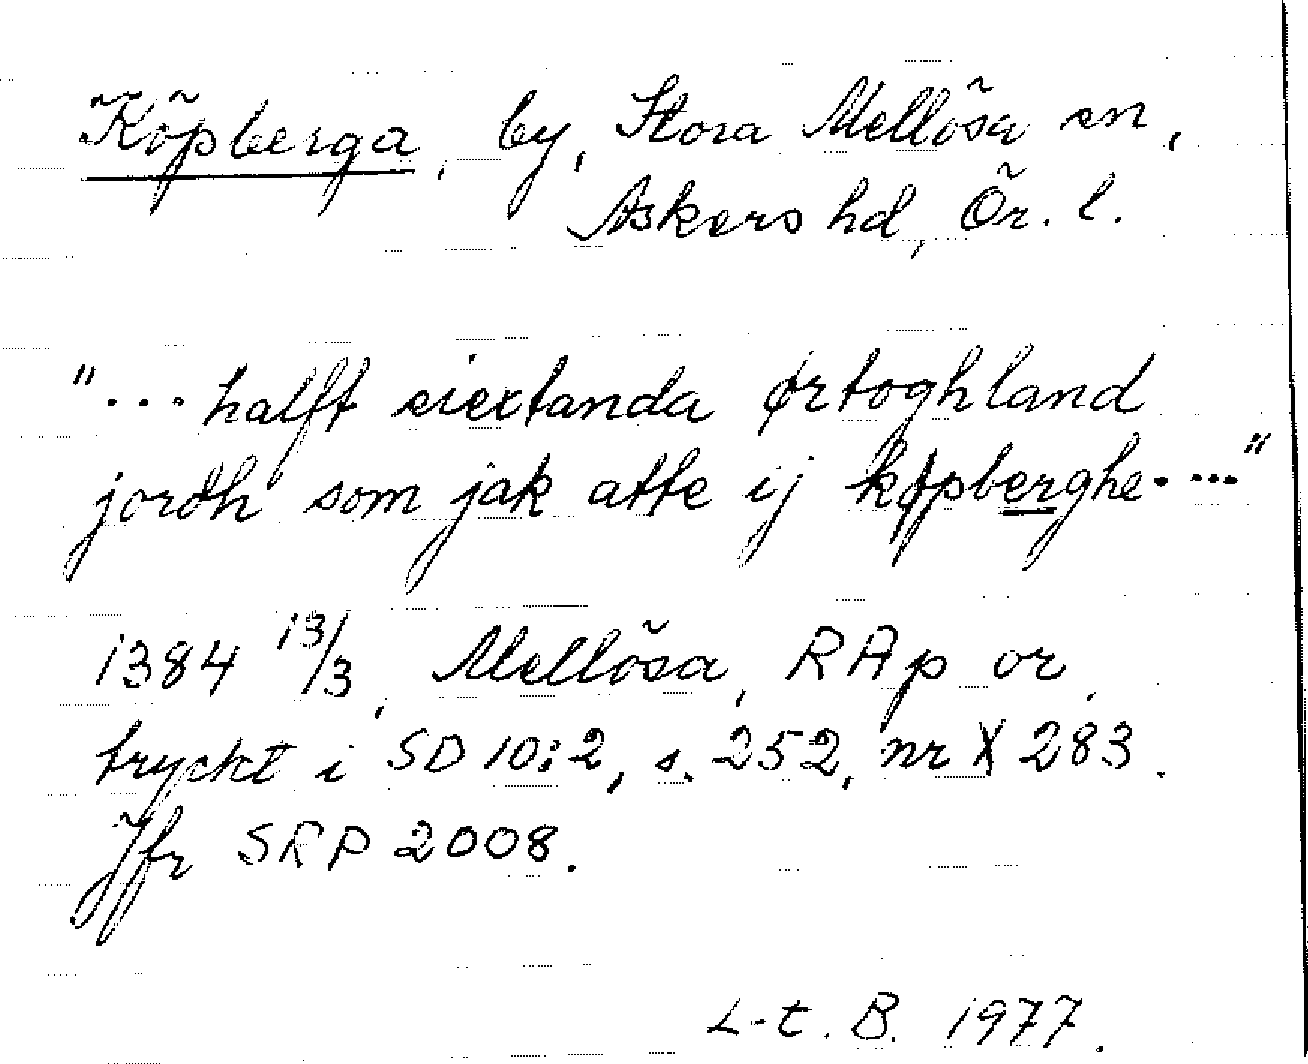 Köpberga, by, Stora Mellösa sn,
Askers hd, Ör. l.
"... halfft siextanda ørtoghland
jordh som jak atte ij køpberghe...."
1384 13/3, Mellösa, RAp or,
tryckt i SD 10:2, s. 252, nr X 283.
Jfr SRP 2008.
L-t. B. 1977.